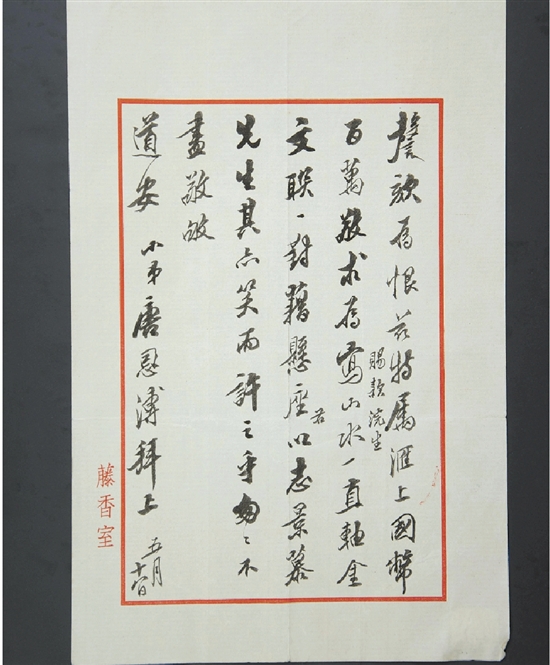 謦欬為恨茲特屬滙上國幣
百萬敬求為寫山水一直軸金
賜款浣生
文联一對藉懸座右以志景慕
先生其亦笑而許之乎匆〻不
盡敬敂
道安 小弟唐溥拜上
五月
十日
藤香室